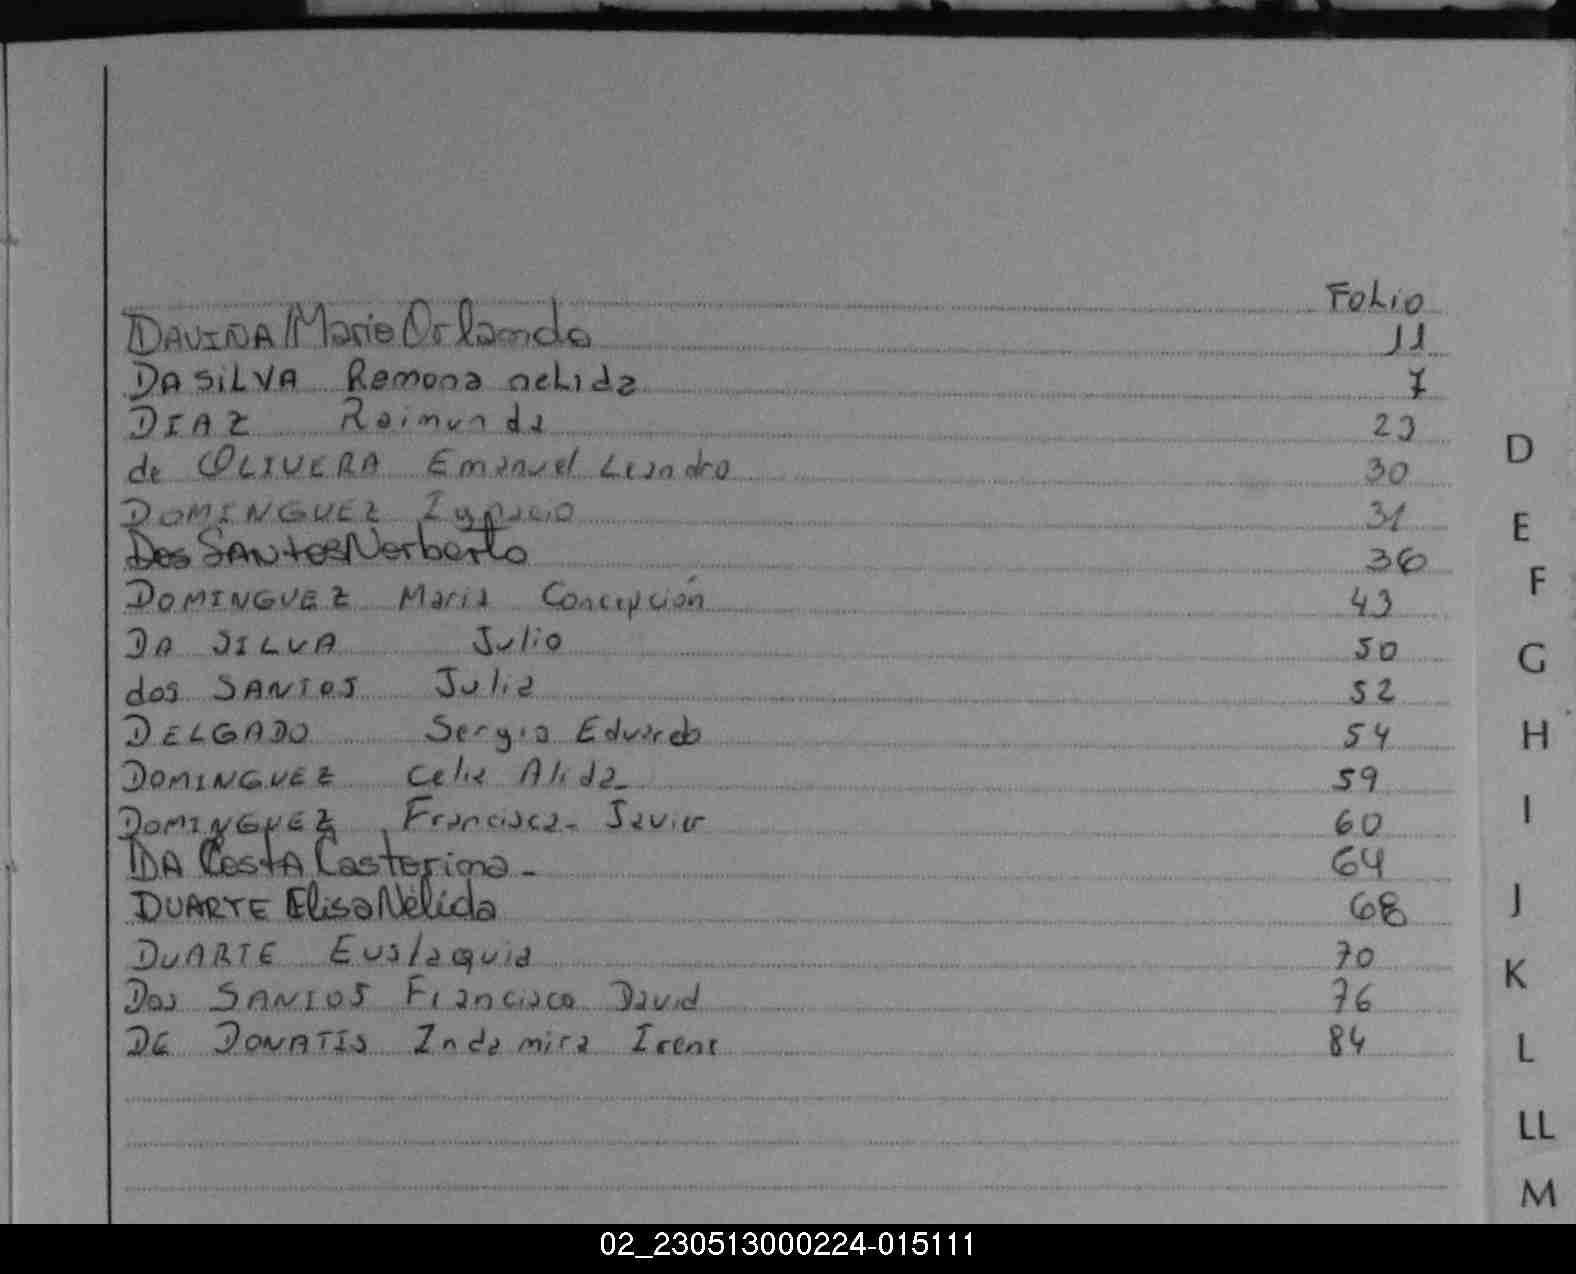 Folio
DAVIÑA Mario Orlando 11
DA SILVA Ramona nelida 7
DIAZ Raimunda 23
de OLIVERA Emanuel Leandro 30
DOMINGUEZ Ignacio 31
Dos SANtos Norberto 36
DOMINGUEZ Maria Concepción 43
DA SILVA Julio 50
dos SANTOS Julia 52
DELGADO Sergio Eduardo 54
DOMINGUEZ Celia Alida 59
DOMINGUEZ Francisca Javier 60
DA CostA Casterina 64
DUARTE Elisa Nélida 68
DUARTE Eustaquia 70
Dos SANTOS Francisco David 76
DE DONATIS Indamira Irene 84
D
E
F
G
H
I
J
K
L
LL
M
02_230513000224-015111